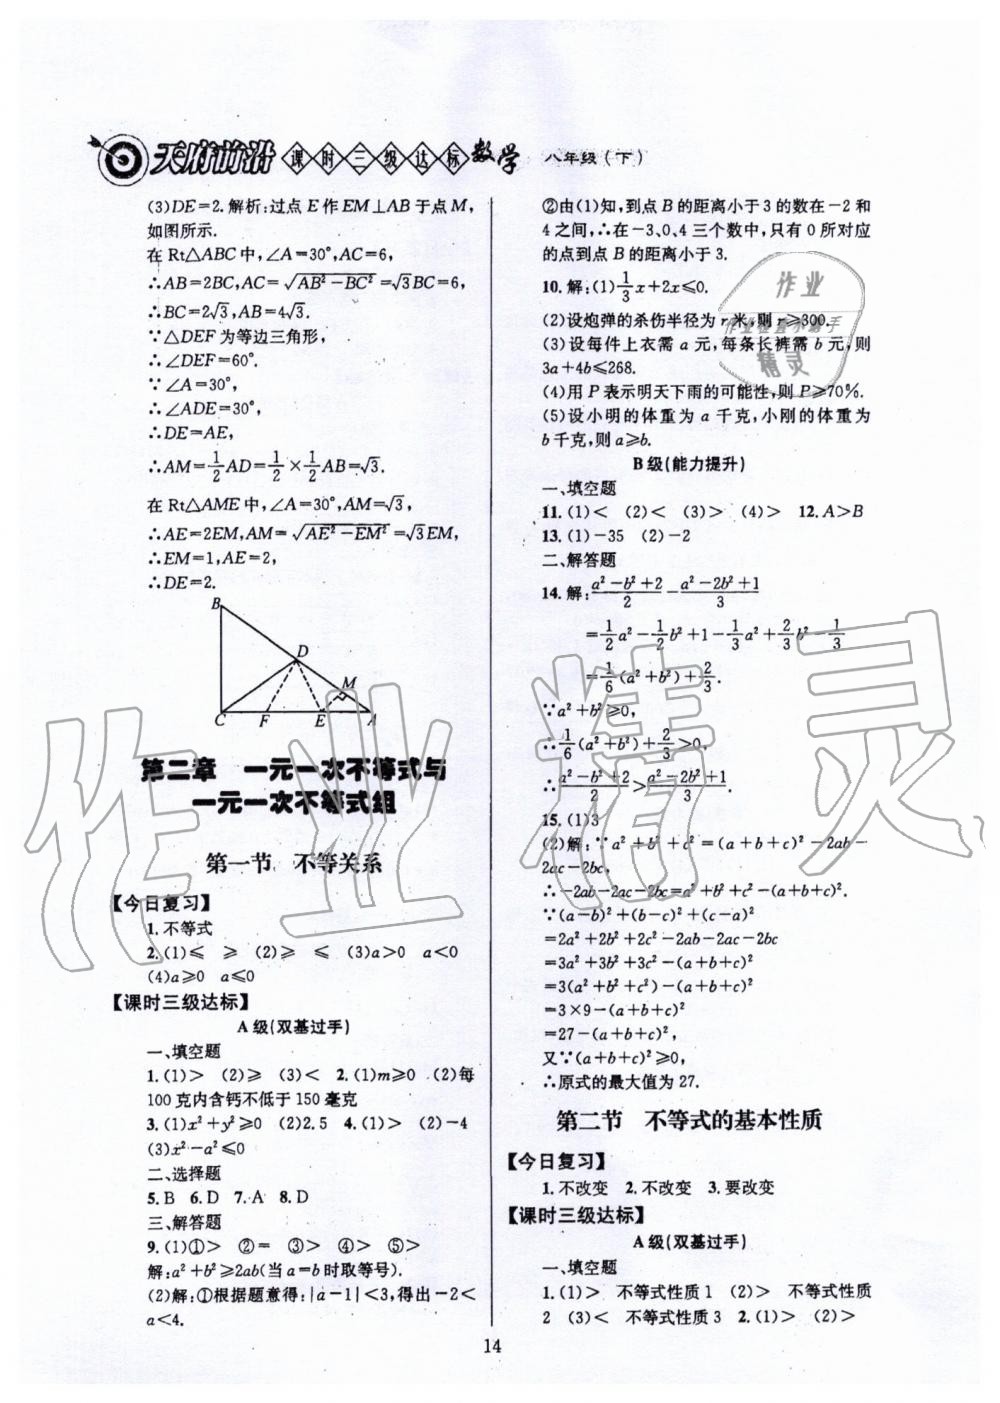 天府前沿 课时三级达标 数学 八年级(下)
(3)DE=2. 解析:过点 E 作 EM⊥AB 于点 M,
如图所示.
在 Rt△ABC 中,∠A=30°,AC=6,
∴AB=2BC,AC=√(AB²-BC²)=√3BC=6,
∴BC=2√3,AB=4√3.
∵△DEF 为等边三角形,
∴∠DEF=60°.
∵∠A=30°,
∴∠ADE=30°,
∴DE=AE,
∴AM=1/2AD=1/2×1/2AB=√3.
在 Rt△AME 中,∠A=30°,AM=√3,
∴AE=2EM,AM=√(AE²-EM²)=√3EM,
∴EM=1,AE=2,
∴DE=2.
B
D
M
C F E A
第二章 一元一次不等式与
一元一次不等式组
第一节 不等关系
【今日复习】
1. 不等式
2. (1)≤ ≥ (2)≥ ≤ (3)a>0 a<0
(4)a≥0 a≤0
【课时三级达标】
A 级(双基过手)
一、填空题
1. (1)> (2)≥ (3)< 2. (1)m≥0 (2)每
100 克内含钙不低于 150 毫克
3. (1)x²+y²≥0 (2)2.5 4. (1)> (2)-4
(3)x²-a²≤0
二、选择题
5. B 6. D 7. A 8. D
三、解答题
9. (1)①> ②= ③> ④> ⑤>
解:a²+b²≥2ab(当 a=b 时取等号).
(2)解:①根据题意得:|a-1|<3,得出-2<
a<4.
②由(1)知,到点 B 的距离小于 3 的数在-2 和
4 之间,∴在-3、0、4 三个数中,只有 0 所对应
的点到点 B 的距离小于 3.
10. 解:(1)1/3x+2x≤0.
(2)设炮弹的杀伤半径为 r 米,则 r≥300.
(3)设每件上衣需 a 元,每条长裤需 b 元,则
3a+4b≤268.
(4)用 P 表示明天下雨的可能性,则 P≥70%.
(5)设小明的体重为 a 千克,小刚的体重为
b 千克,则 a≥b.
B 级(能力提升)
一、填空题
11. (1)< (2)< (3)> (4)> 12. A>B
13. (1)-35 (2)-2
二、解答题
14. 解:(a²-b²+2)/2-(a²-2b²+1)/3
=1/2a²-1/2b²+1-1/3a²+2/3b²-1/3
=1/6(a²+b²)+2/3.
∵a²+b²≥0,
∴1/6(a²+b²)+2/3>0,
∴(a²-b²+2)/2>(a²-2b²+1)/3.
15. (1)3
(2)解:∵a²+b²+c²=(a+b+c)²-2ab-
2ac-2bc,
∴-2ab-2ac-2bc=a²+b²+c²-(a+b+c)².
∵(a-b)²+(b-c)²+(c-a)²
=2a²+2b²+2c²-2ab-2ac-2bc
=3a²+3b²+3c²-(a+b+c)²
=3(a²+b²+c²)-(a+b+c)²
=3×9-(a+b+c)²
=27-(a+b+c)²,
又∵(a+b+c)²≥0,
∴原式的最大值为 27.
第二节 不等式的基本性质
【今日复习】
1. 不改变 2. 不改变 3. 要改变
【课时三级达标】
A 级(双基过手)
一、填空题
1. (1)> 不等式性质 1 (2)> 不等式性质
2 (3)< 不等式性质 3 2. (1)> (2)>
14
作业精灵
作业
精灵